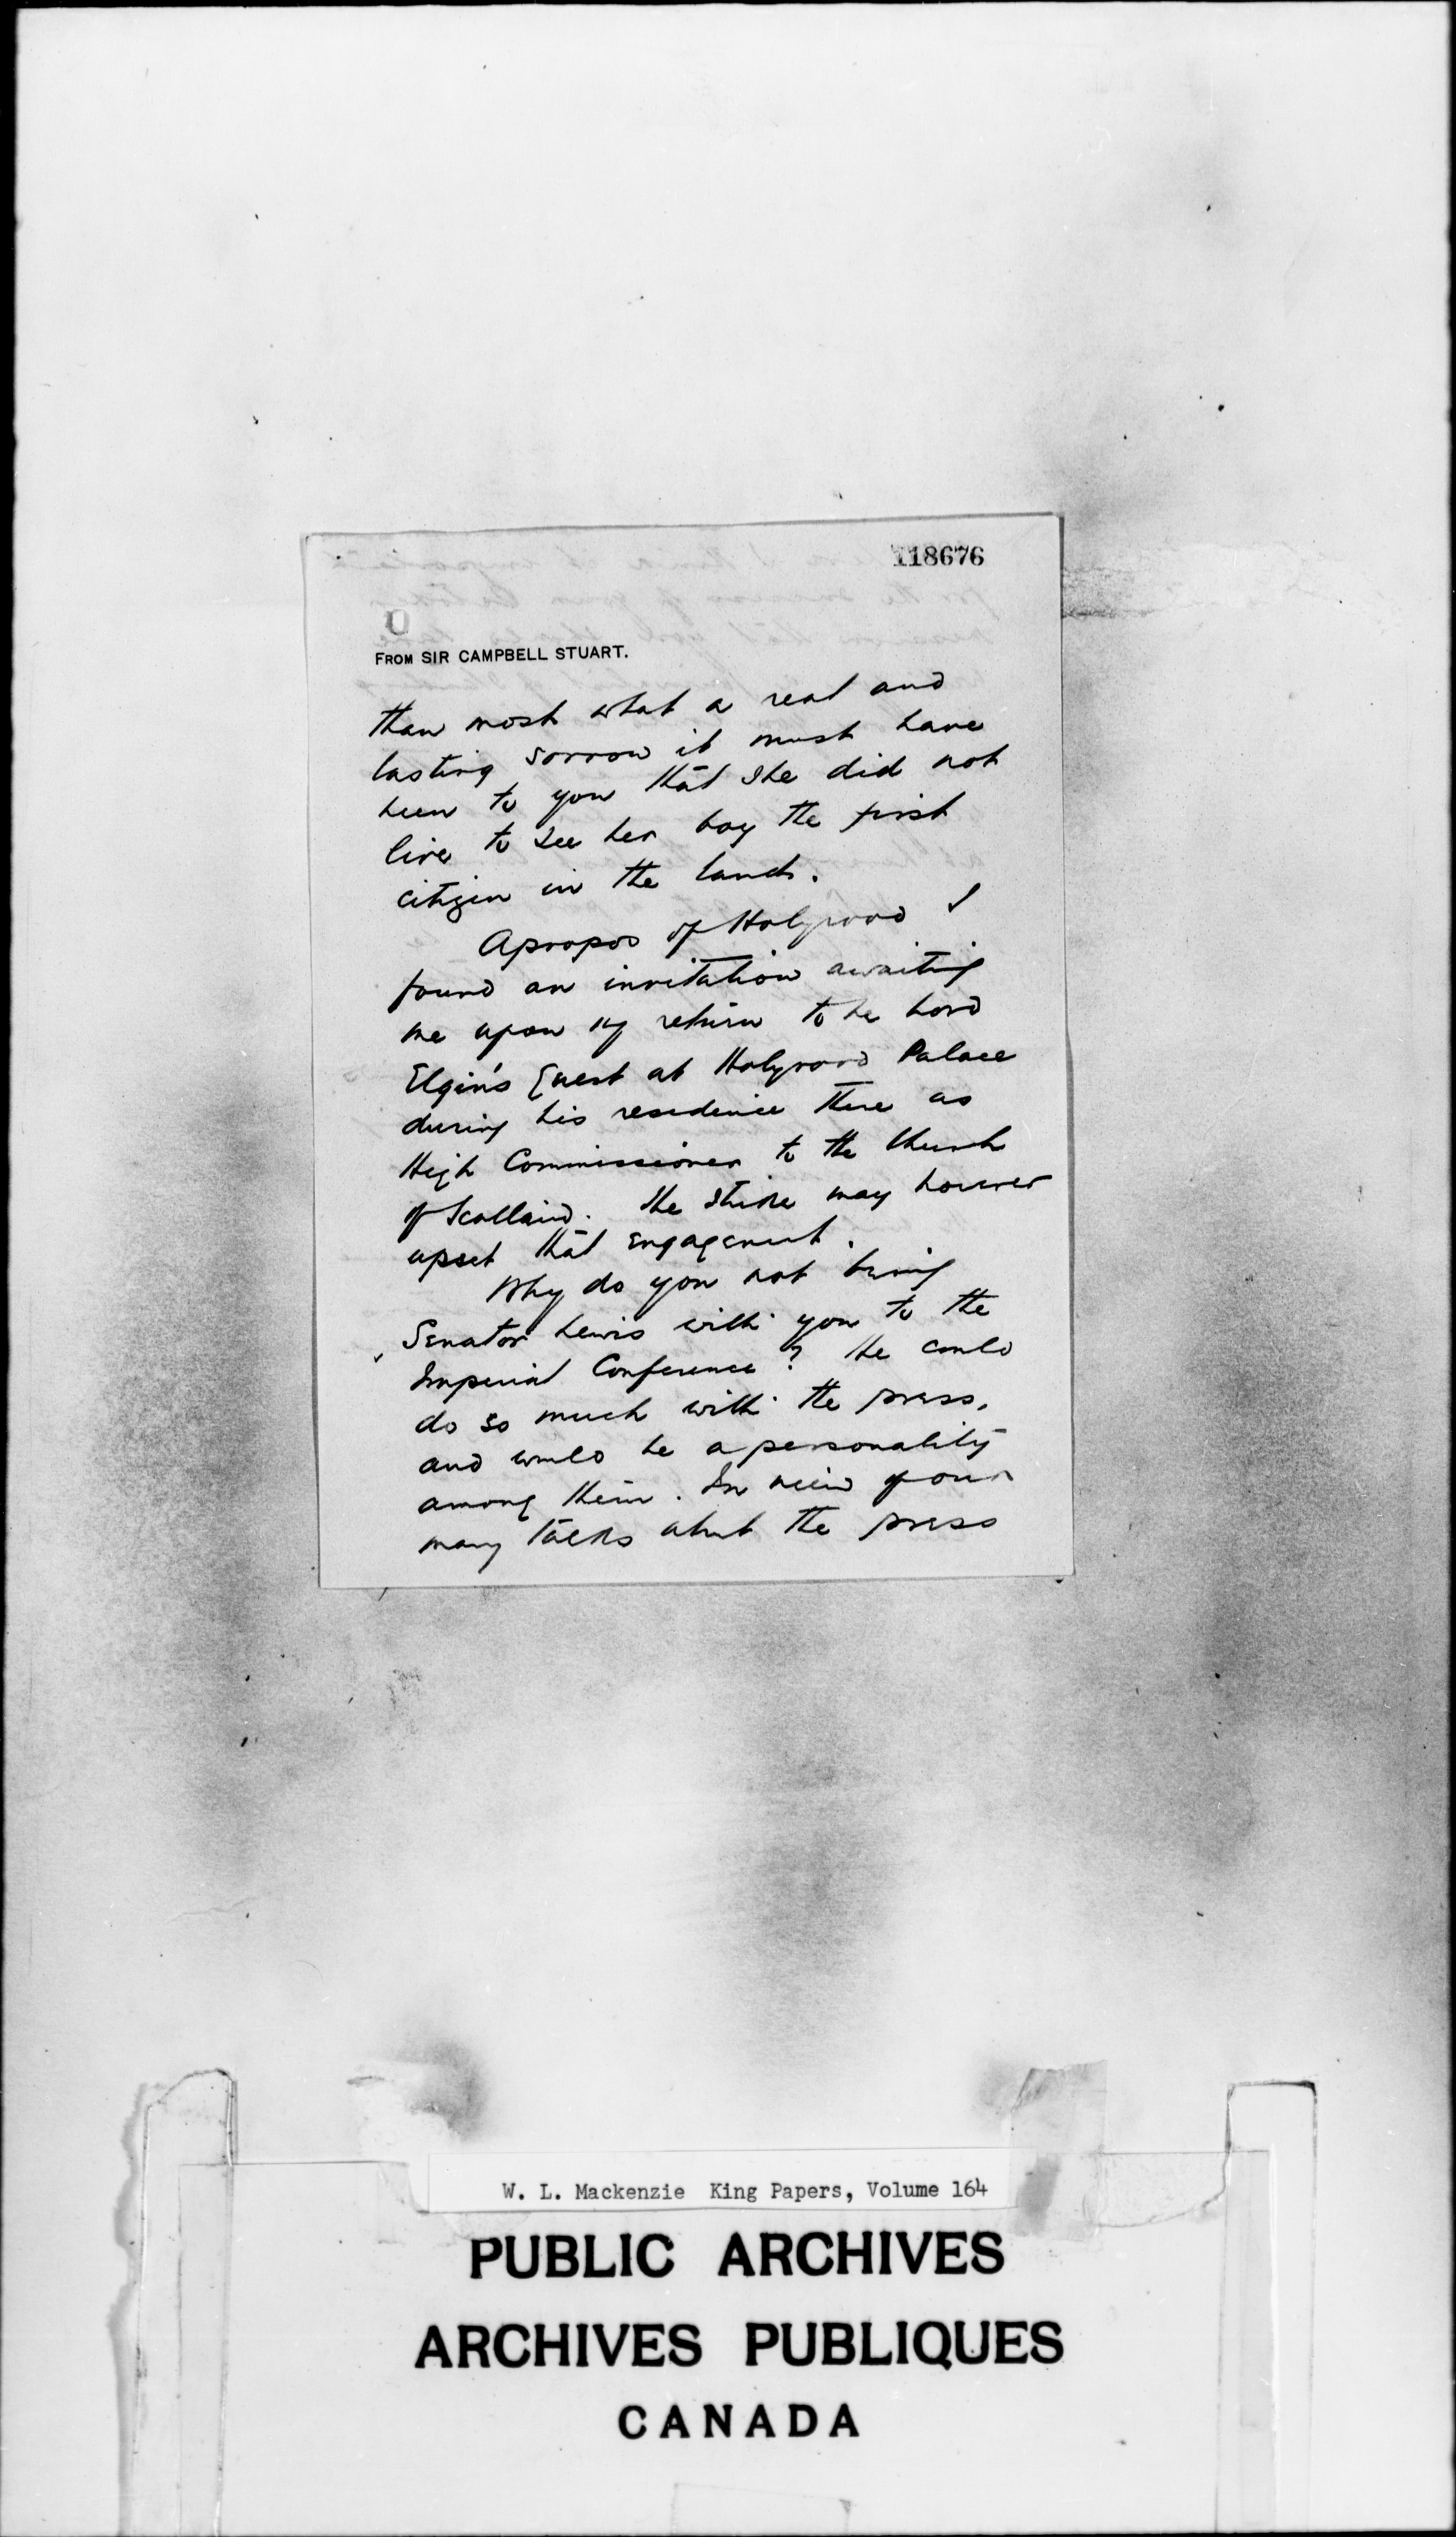 118676
FROM SIR CAMPBELL STUART.
than most what a real and
lasting sorrow it must have
been to you that she did not
live to see her boy the first
citizen in the land.
Apropos of Holyrood I
found an invitation awaiting
me upon my return to be Lord
Elgin's guest at Holyrood Palace
during his residence there as
High Commissioner to the Church
of Scotland. The strike may however
upset that engagement.
Why do you not bring
Senator Lewis with you to the
Imperial Conference? He could
do so much with the press,
and would be a personality
among them. In view of our
many talks about the press
W. L. Mackenzie King Papers, Volume 164
PUBLIC ARCHIVES
ARCHIVES PUBLIQUES
CANADA